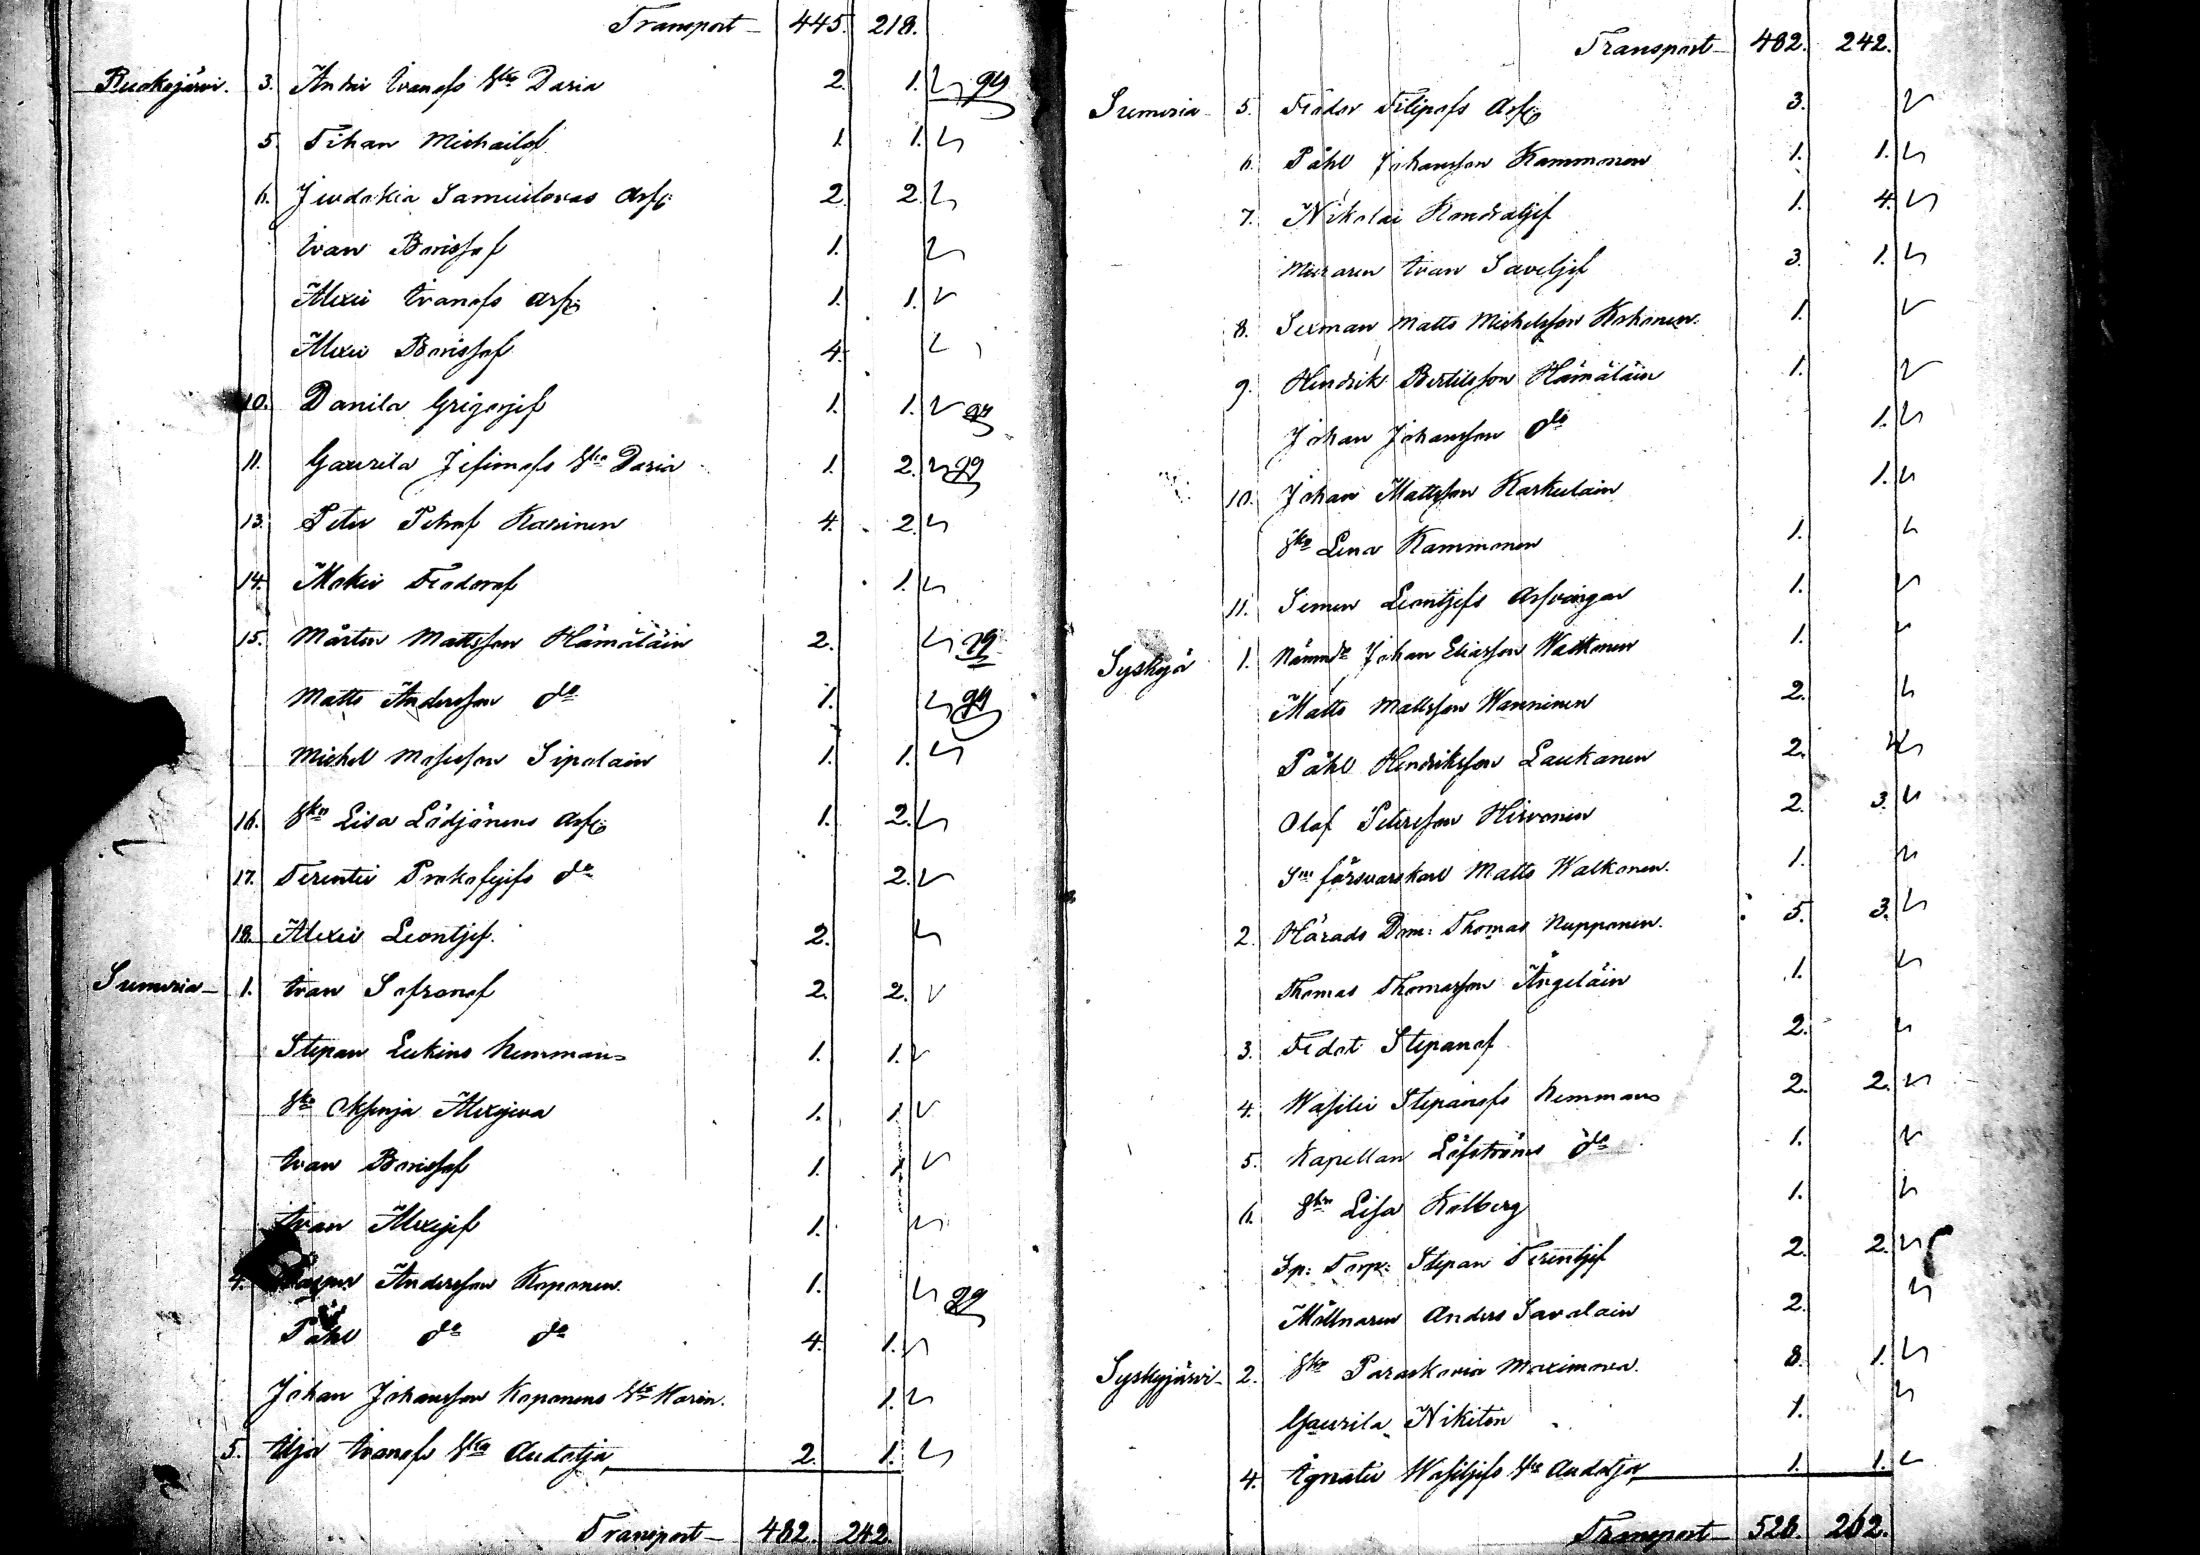 Transport 445. 218.
Ruokojärvi. 3. Andrei Ivanofs Eka Daria 2. 1.
5. Tihan Michailof 1. 1.
6. Jevdokia Samuilovas Arf: 2. 2.
Ivan Borissof 1.
Alexei Ivanofs arf: 1. 1.
Alexei Borissof 4.
10. Danila Grigorjef 1. 1.
11. Gavrila Jefimofs Eka Daria 1. 2.
13. Peter Petrof Karinen 4. 2.
14. Mokei Feodorof 1.
15. Mårten Mattsson Hämäläin 2.
Matts Andersson do 1.
Michel Mosesson Sipolain 1. 1.
16. Eka Lisa Lödjönens Arf: 1. 2.
17. Terentei Prokofjefs do 2.
18. Alexei Leontjef. 2.
Sumeria 1. Ivan Safronof 2. 2.
Stepan Lukins hemman 1. 1.
Eka Aksenja Alexjeva 1. 1.
Ivan Borissof 1. 1
Ivan Alexejef 1.
4. Andersson Koponen. 1.
Påhl do do 4. 1.
Johan Johansson Koponens Eka Karin. 1.
5. Ilja Ivanofs Eka Audotja 2. 1.
Transport 482. 242.
Transport 482. 242.
Sumeria 5. Feodor Filipofs Arf: 3.
6. Påhl Johansson Kammonen 1. 1.
7. Nikolai Kondratjef 1. 4.
Muraren Ivan Saveljef 3. 1.
8. Sexman Matts Michelsson Kokonen. 1.
9. Hendrik Bertilsson Hämäläin 1.
Johan Johansson do 1.
10. Johan Mattsson Karkulain 1.
Eka Lena Kammonen 1.
11. Simen Leontjefs Arfvingar 1.
Syskyä 1. Nämnde Johan Eliasson Walkonen 1.
Matts Mattsson Wanninen 2.
Påhl Hendriksson Laukanen 2.
Olaf Petersson Hirvonen 2. 3.
försvarskarl Matts Walkonen. 1.
2. Härads Dom: Thomas Nupponen. 5. 3.
Thomas Thomasson Ängeläin 1.
3. Fedot Stepanof 2.
4. Wasilei Stepanofs hemman 2. 2.
5. Kapellan Löfströms do 1.
6. Eka Lisa Kolberg 1.
Sp: Torp: Stepan Terentjef 2. 2.
Möllnaren Anders Savolain 2.
Syskyjärvi 2. Eka Paraskovia Maximova. 8. 1.
Gavrila Nikitin 1.
4. Ignatei Wasiljefs Eka Audotja 1. 1.
Transport 528. 262.